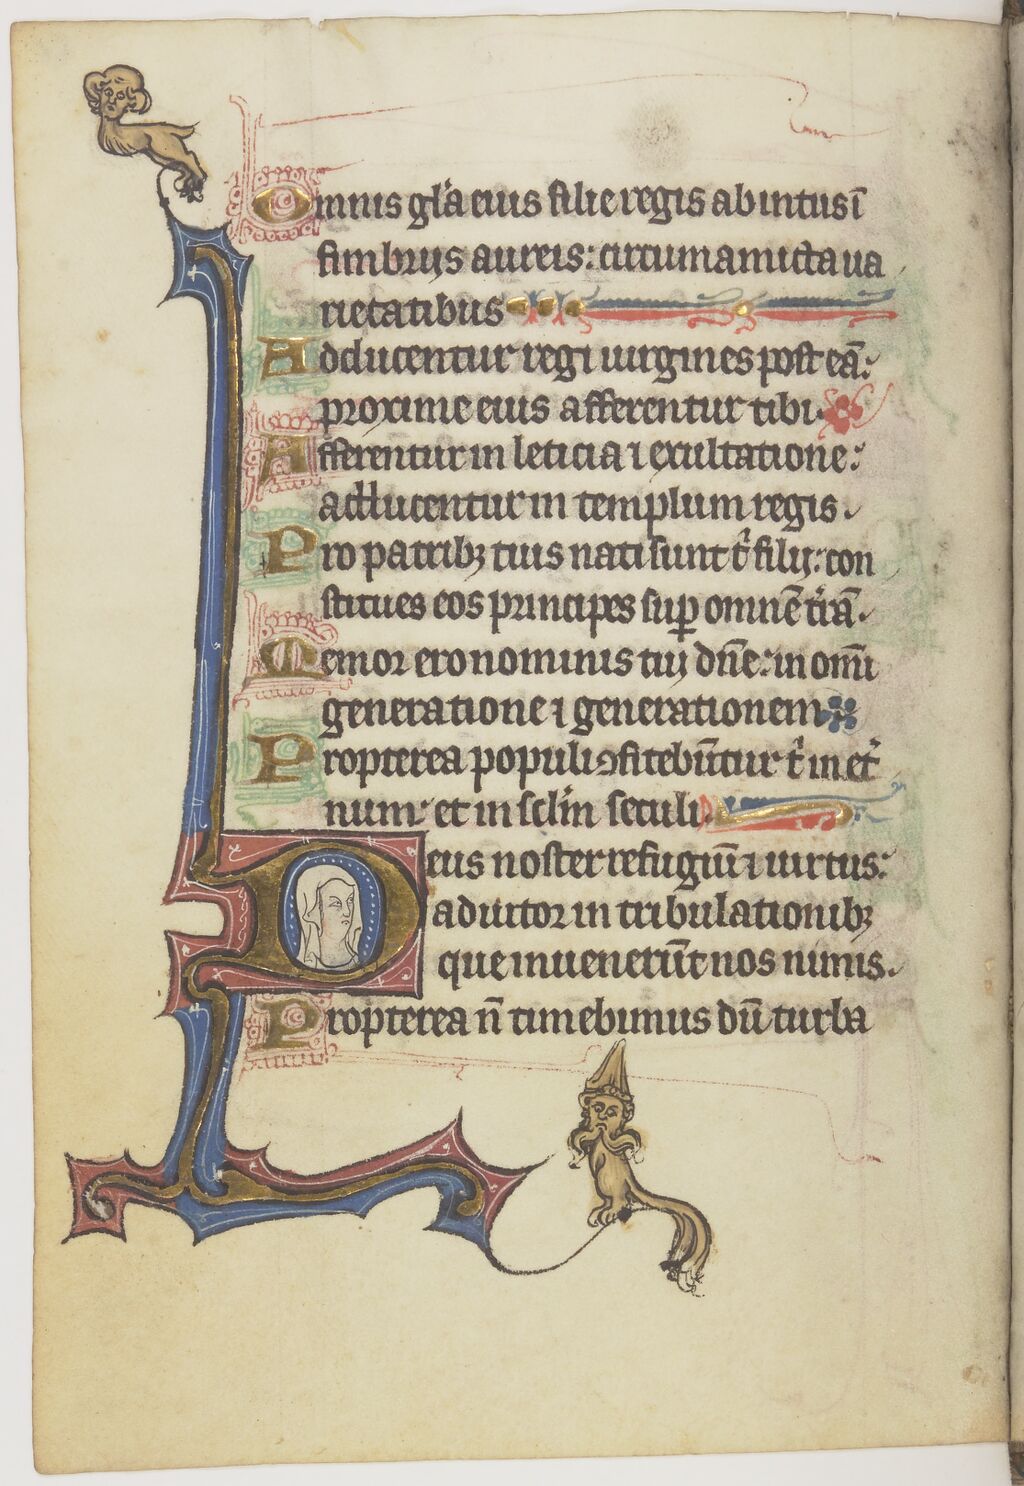 Omnis gl̃a eius filie regis ab intus ĩ
fimbrijs aureis: circumamicta ua
rietatibus
Adducentur regi uirgines post eã:
proxime eius afferentur tibi.
Afferentur in leticia ⁊ exultatione:
adducentur in templum regis.
Pro patribꝫ tuis nati sunt t̾ filij: con
stitues eos principes suꝑ omnẽ t̾rã.
Memor ero nominis tui dñe: in om̃i
generatione ⁊ generationem
Propterea populi ꝯfitebũtur t̾ in et̾
num: et in sc̃lm seculi.
Deus noster refugiũ ⁊ uirtus:
adiutor in tribulationibꝫ
que inuenerũt nos nimis.
Propterea ñ timebimus dũ turba